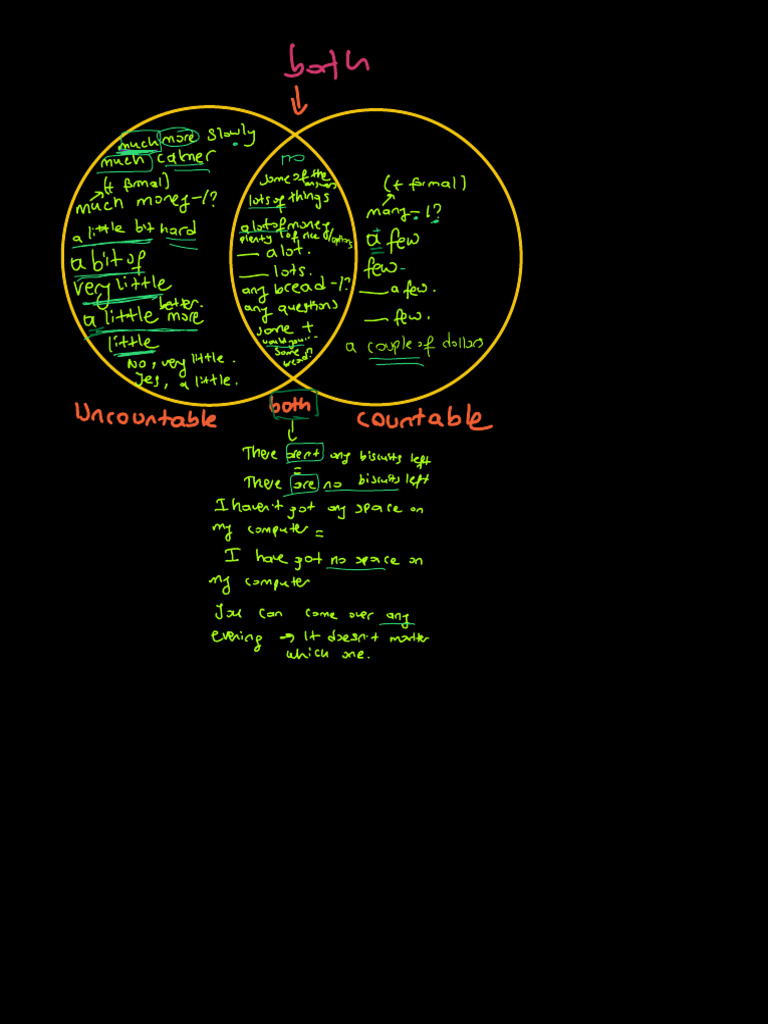 both
much more slowly
much calmer
(+ formal)
much money -/?
a little bit hard
a bit of
very little
better.
a little more
little
No, very little.
Yes, a little.
no
some of the answers
lots of things
a lot of money
plenty of rice / laptops
— a lot.
— lots.
any bread -/?
any questions
some +
would you...
some
bread?
(+ formal)
many - /?
a few
few -
— a few.
— few.
a couple of dollars
Uncountable
both
countable
There aren't any biscuits left
=
There are no biscuits left
I haven't got any space on
my computer =
I have got no space on
my computer
You can come over any
evening → It doesn't matter
which one.